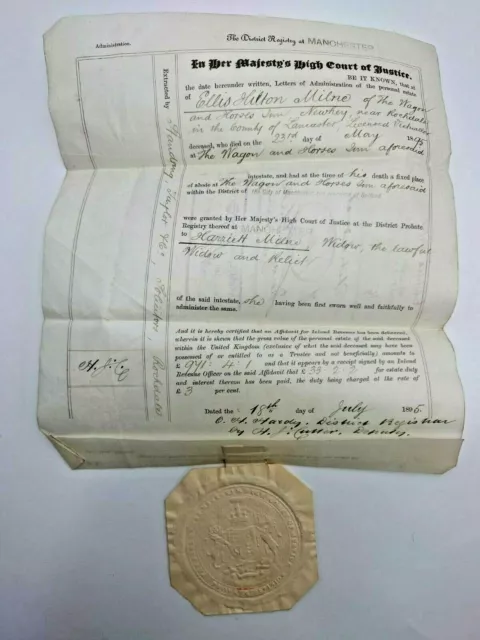 Administration.
The District Registry at MANCHESTER
In Her Majesty's High Court of Justice.
BE IT KNOWN, that at
the date hereunder written, Letters of Administration of the personal estate
of Ellis Hilton Milne of The Wagon
and Horses Inn Newhey near Rochdale
in the County of Lancaster, Licensed Victualler
deceased, who died on the 23rd day of May 1895
at The Wagon and Horses Inn aforesaid
intestate, and had at the time of his death a fixed place
of abode at The Wagon and Horses Inn aforesaid
within the District of
were granted by Her Majesty's High Court of Justice at the District Probate
Registry thereof at MANCHESTER
to Harriett Milne Widow, the lawful
Widow and Relict
of the said intestate, she having been first sworn well and faithfully to
administer the same.
And it is hereby certified that an Affidavit for Inland Revenue has been delivered,
wherein it is shewn that the gross value of the personal estate of the said deceased
within the United Kingdom (exclusive of what the said deceased may have been
possessed of or entitled to as a Trustee and not beneficially) amounts to
£ 941 : 4 : 1 and that it appears by a receipt signed by an Inland
Revenue Officer on the said Affidavit that £ 33 2 2 for estate duty
and interest thereon has been paid, the duty being charged at the rate of
£ 3 per cent.
Dated the 18th day of July 1895.
District Registrar
By Deputy.
Extracted by Taylor
Rochdale